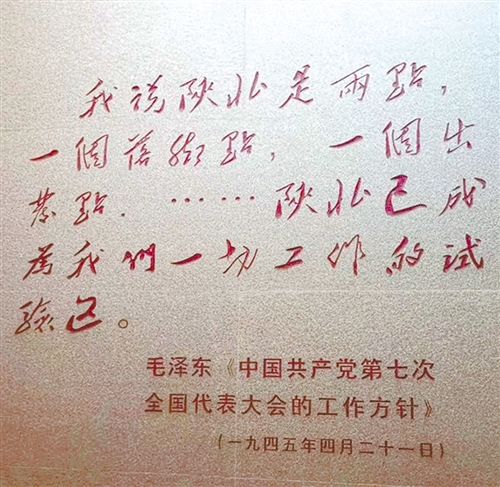 我说陕北是两點，
一個落脚點，一個出
發點．……陕北已成
為我们一切工作的试
驗区。
毛泽东《中国共产党第七次
全国代表大会的工作方针》
（一九四五年四月二十一日）